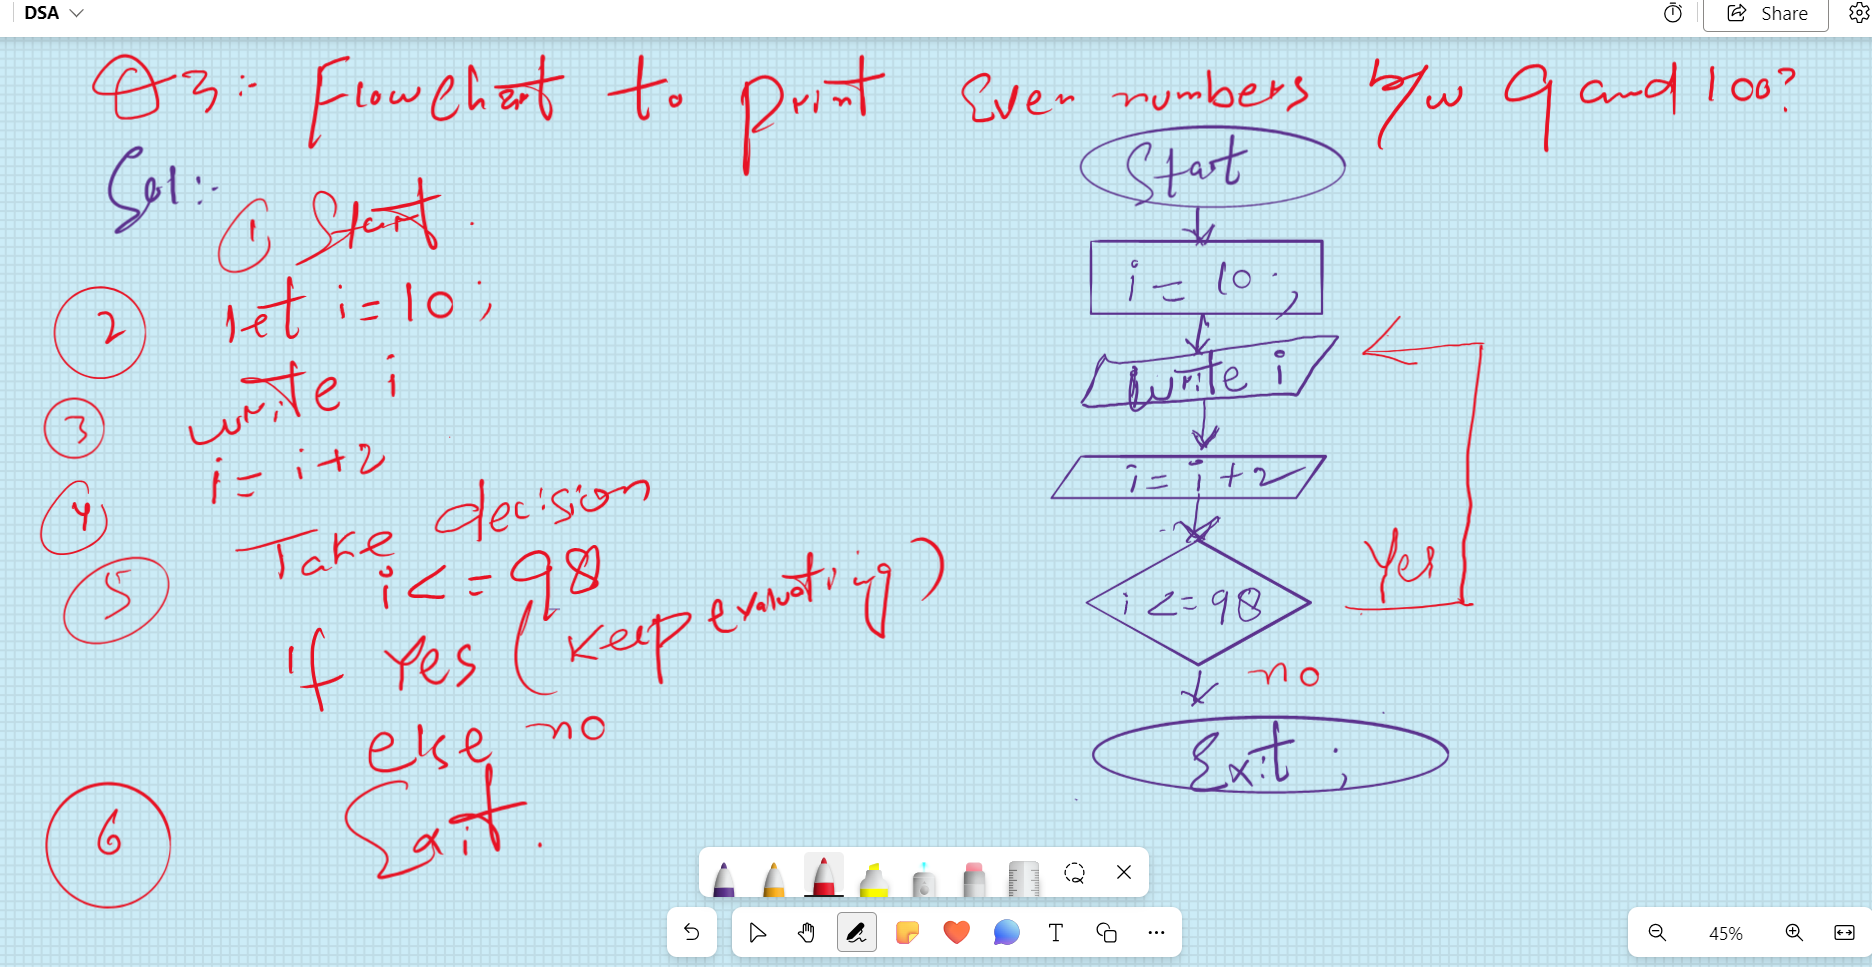 DSA
Share
Q3:- Flowchart to print Even numbers b/w 9 and 100?
Sol:-
1 Start.
2 let i=10;
3 write i
4 i= i+2
5 Take decision
i<=98
if Yes (keep evaluating)
else no
6 Exit.
Start
i = 10;
Write i
i= i+2
i <=98
Yes
no
Exit;
45%